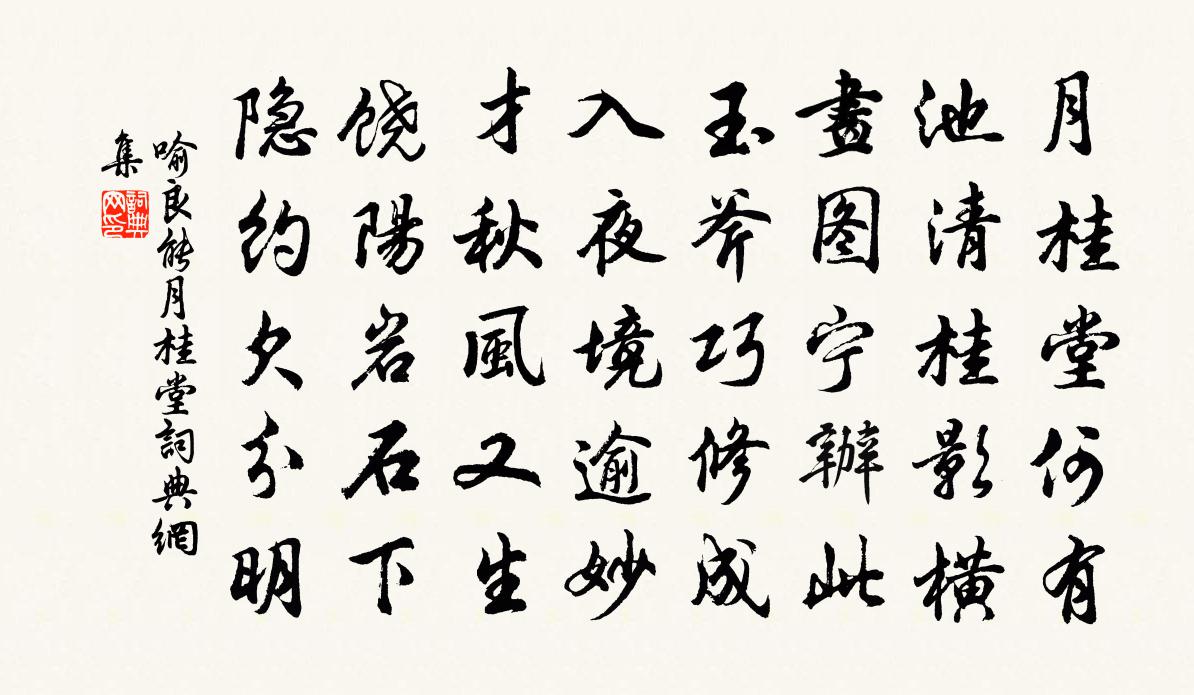 月桂堂何有
池清桂影横
畫图宁辦此
玉斧巧修成
入夜境逾妙
才秋風又生
饶陽岩石下
隐约欠分明
喻良能月桂堂詞典網
集
詞典网印